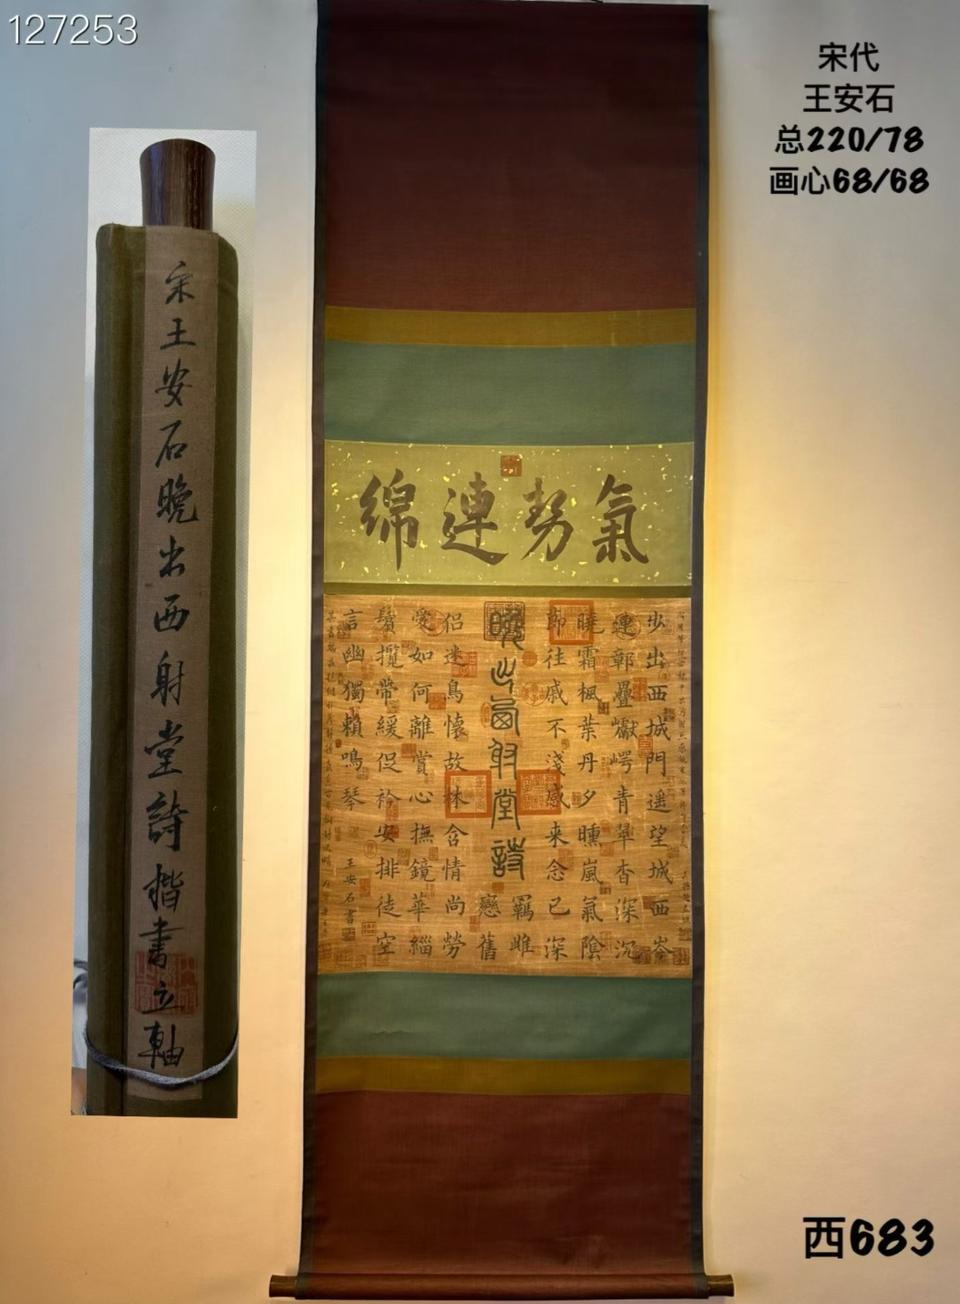 127253
宋代
王安石
总220/78
画心68/68
宋王安石晚出西射堂詩楷書立軸
氣勢連綿
步出西城門遥望城西岑
連鄣疊巘崿青翠杳深沉
曉霜楓葉丹夕曛嵐氣陰
節往戚不淺感来念已深
羈雌
晚出西射堂詩
戀舊
侣迷鳥懷故林含情尚勞
愛如何離賞心撫鏡華緇
鬢攬帶緩促衿安排徒空
言幽獨賴鳴琴
王安石書
西683